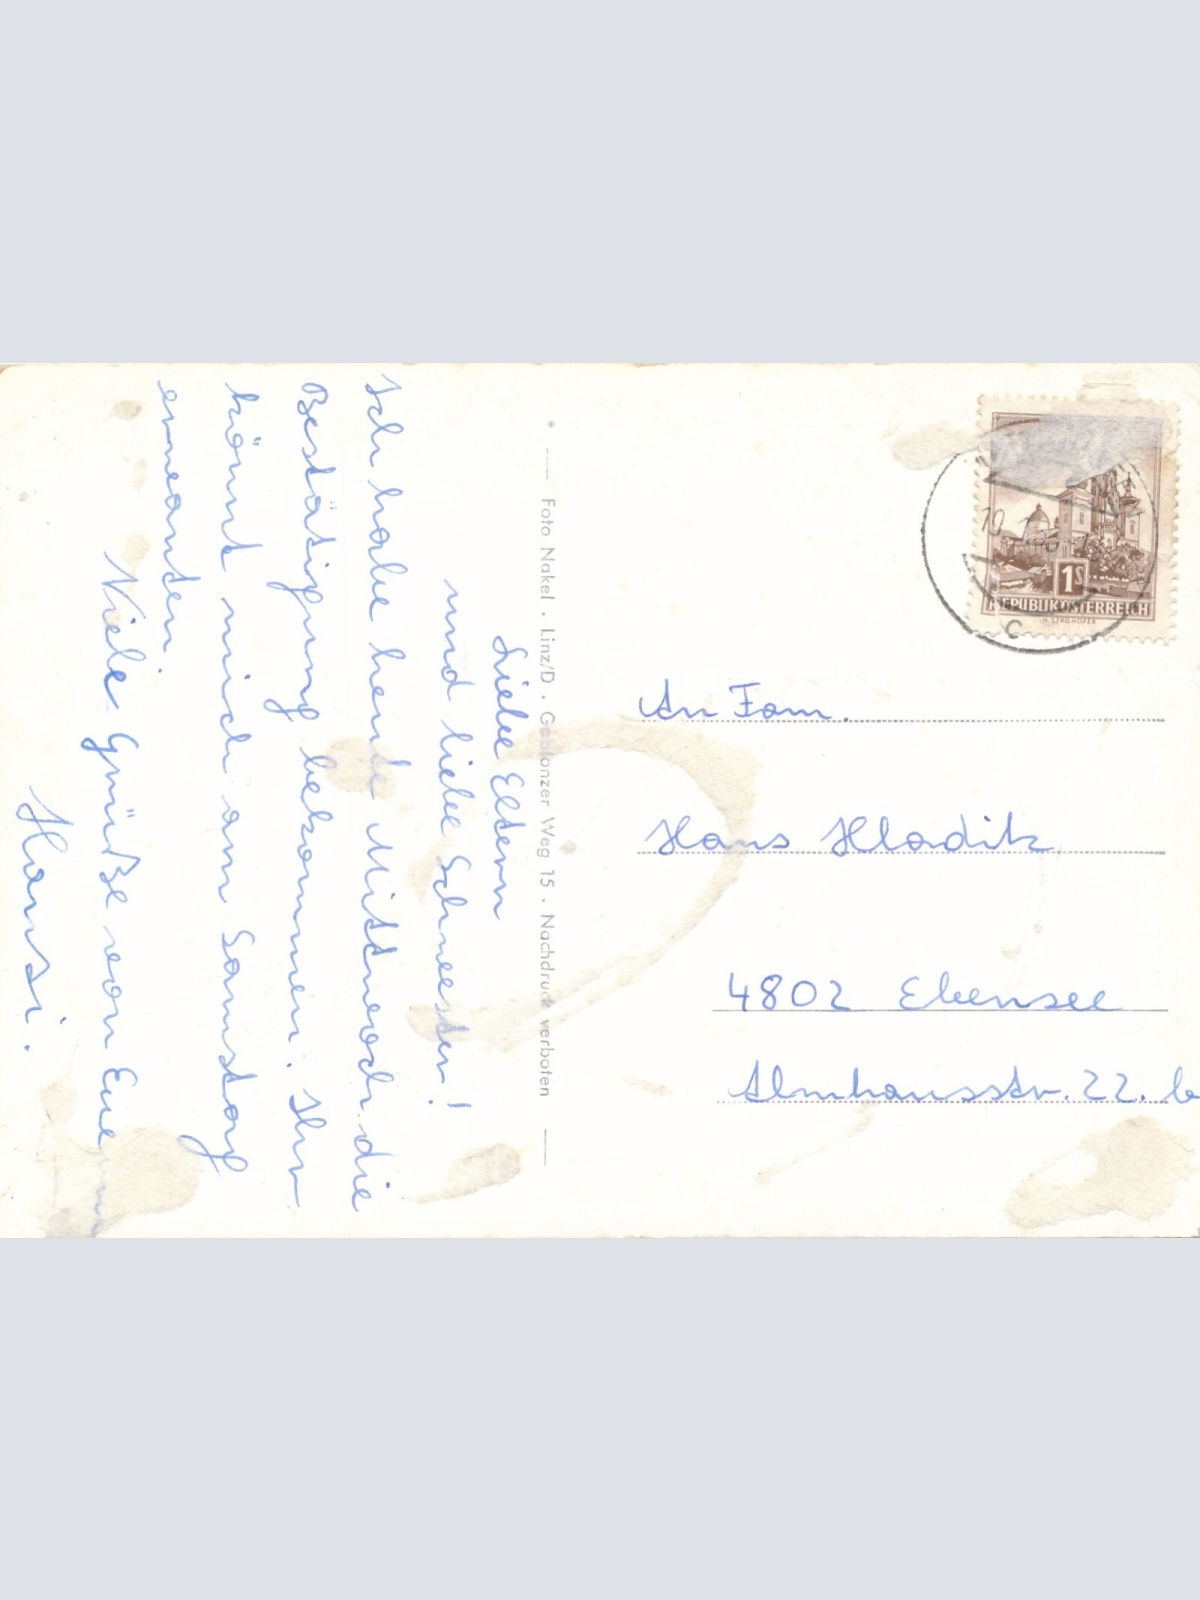 Liebe Eltern
und liebe Schwester!
Ich habe heute Mittwoch die
Bestätigung bekommen. Ihr
könnt mich am Samstag
erwarten.
Viele Grüße von Euerm
Hansi.
Foto Nakel · Linz/D · Gablonzer Weg 15 · Nachdruck verboten
10
1S
REPUBLIK ÖSTERREICH
c
An Fam.
Hans Hladik
4802 Ebensee
Almhausstr. 22. b